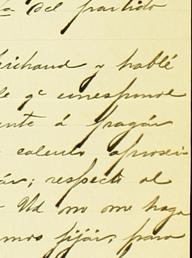 ta del partido
richaud y hablé
le qe corresponde
ente á pagar
calculo aproxi-
ár; respecto al
Ud no me haga
mos fijár, para